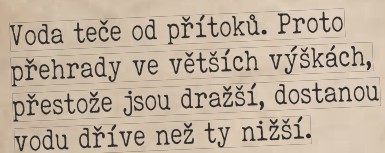 Voda teče od přítoků. Proto
přehrady ve větších výškách,
přestože jsou dražší, dostanou
vodu dříve než ty nižší.